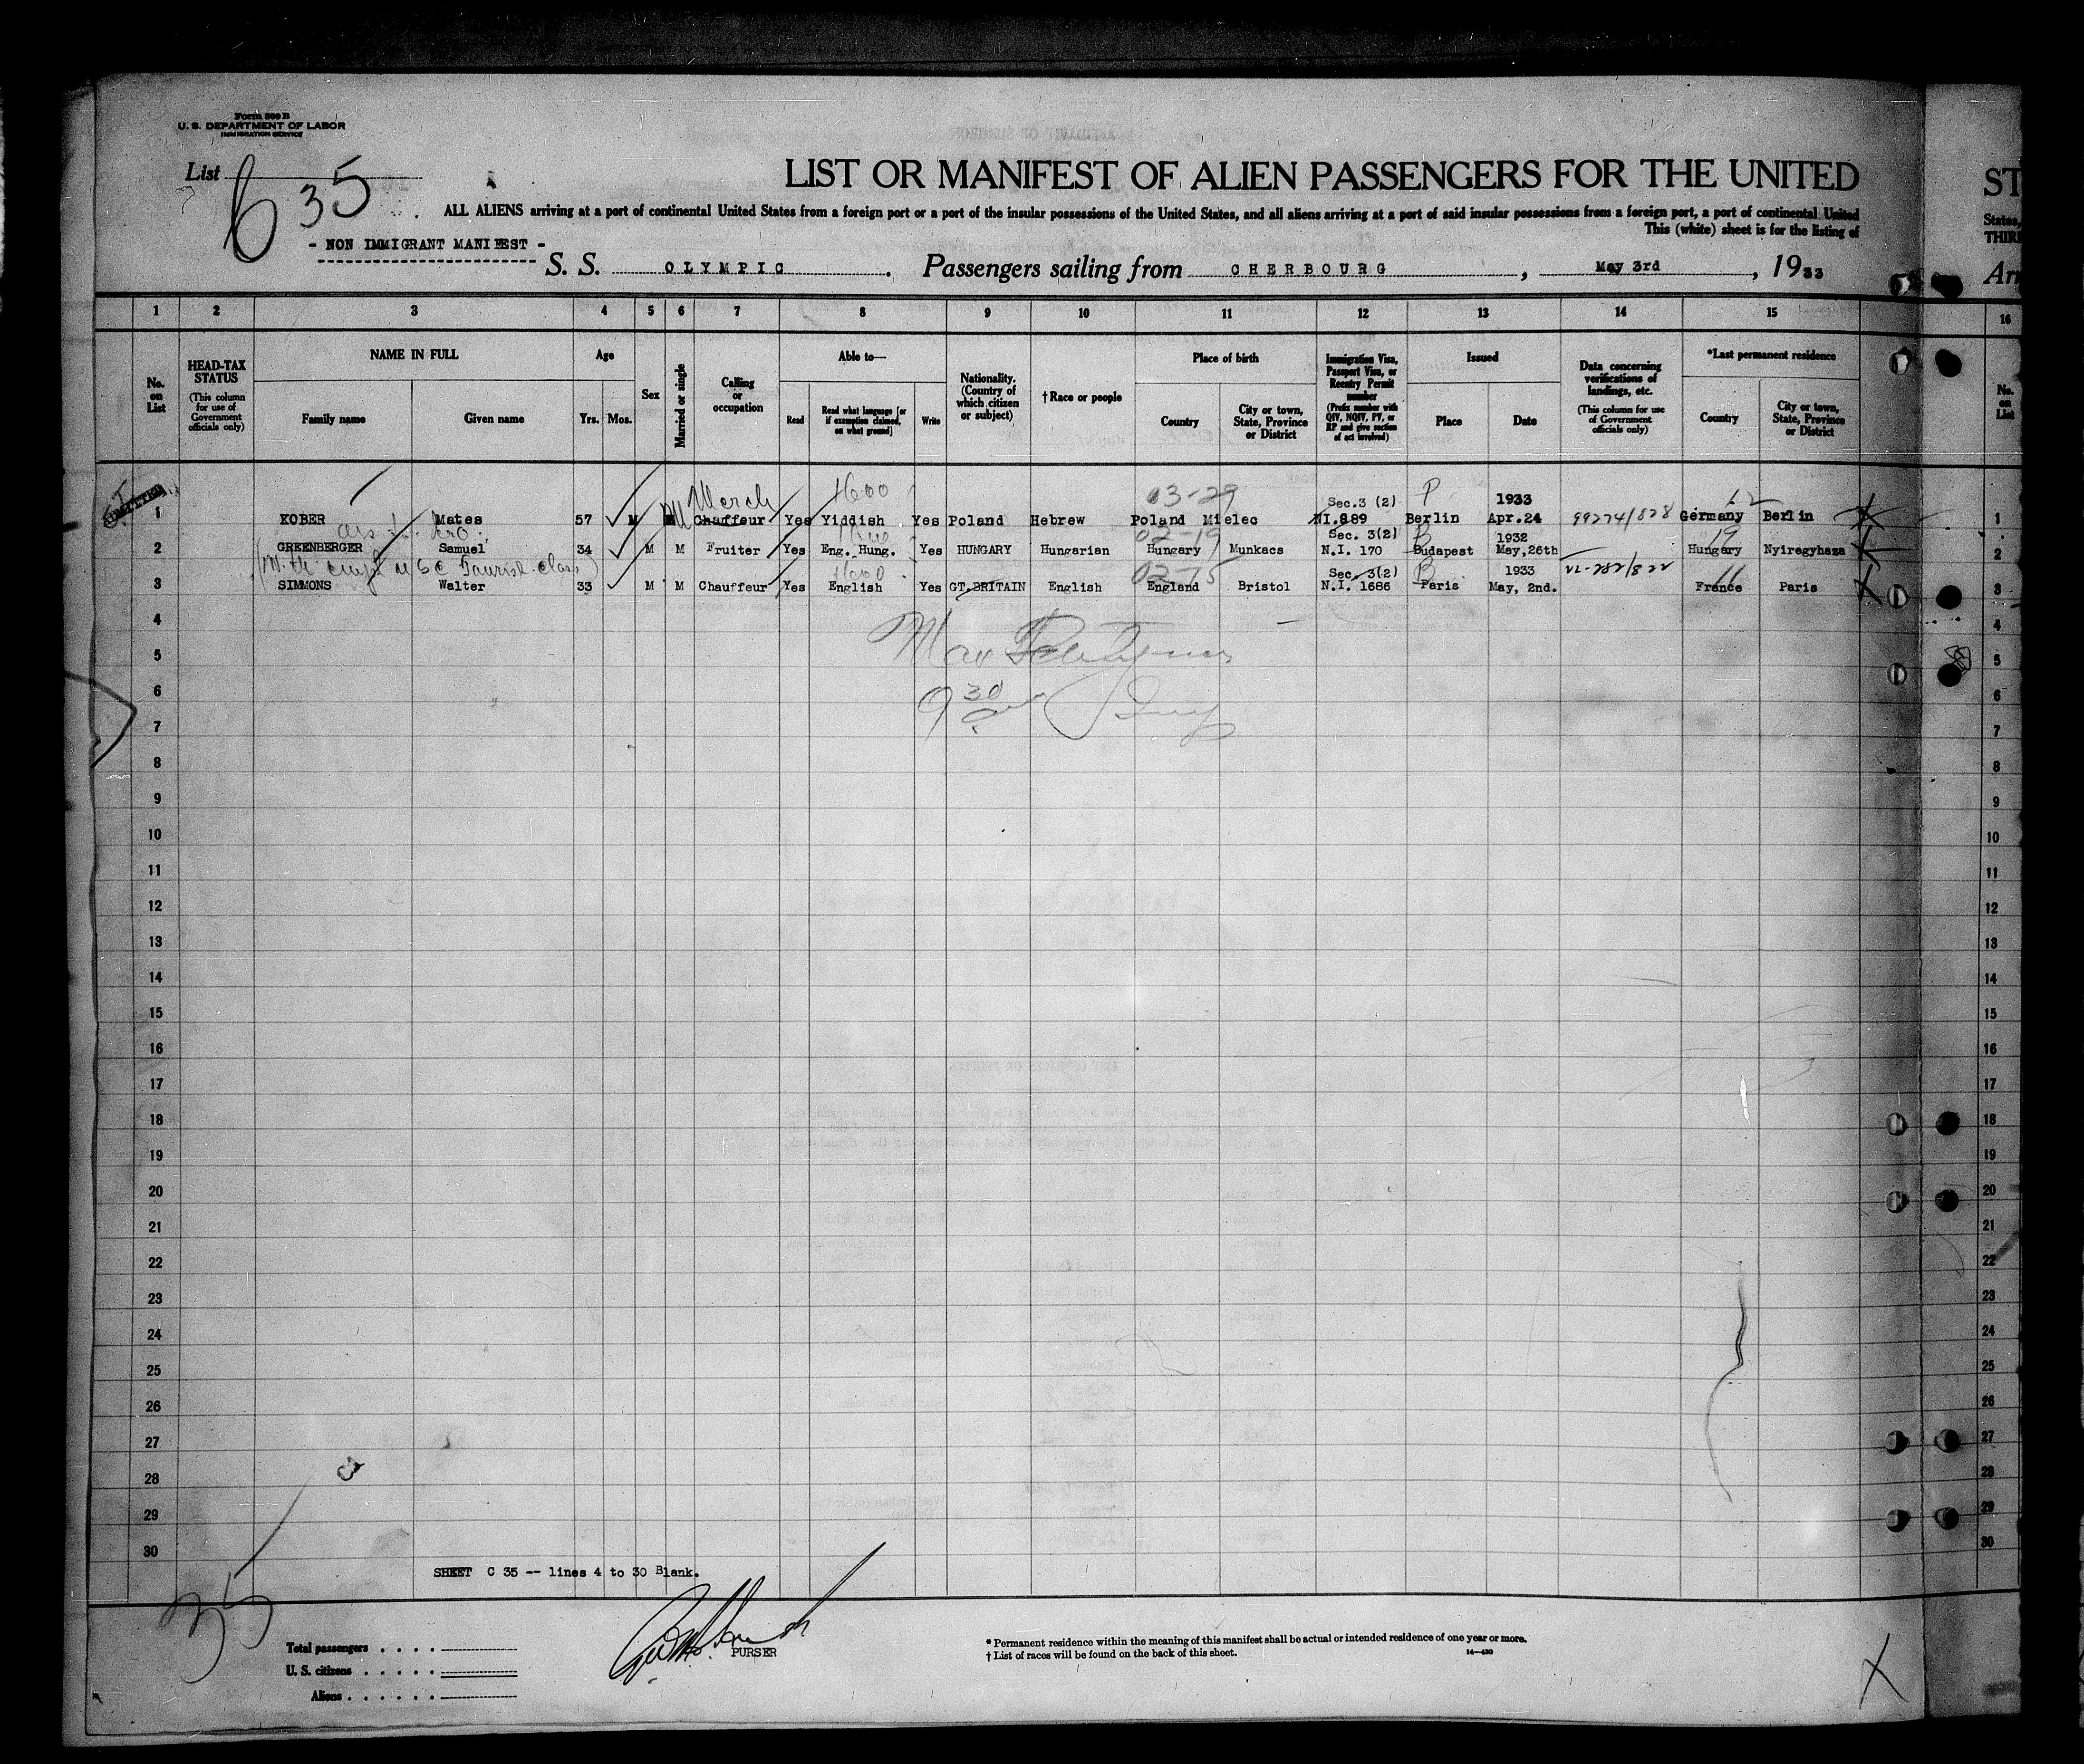 Form 500 B
U. S. DEPARTMENT OF LABOR
IMMIGRATION SERVICE
List 635
LIST OR MANIFEST OF ALIEN PASSENGERS FOR THE UNITED
ST
ALL ALIENS arriving at a port of continental United States from a foreign port or a port of the insular possessions of the United States, and all aliens arriving at a port of said insular possessions from a foreign port, a port of continental United
States,
This (white) sheet is for the listing of
THIR
- NON IMMIGRANT MANIFEST -
S. S. OLYMPIC. Passengers sailing from CHERBOURG, May 3rd, 1933
Arr
1 2 3 4 5 6 7 8 9 10 11 12 13 14 15 16
No. on List
HEAD-TAX STATUS (This column for use of Government officials only)
NAME IN FULL Family name Given name
Age Yrs. Mos.
Sex
Married or single
Calling or occupation
Able to— Read Read what language [or if exemption claimed, on what ground] Write
Nationality. (Country of which citizen or subject)
†Race or people
Place of birth Country City or town, State, Province or District
Immigration Visa, Passport Visa, or Reentry Permit number (Prefix number with QIV, NQIV, PV, or RP and give section of act involved)
Issued Place Date
Data concerning verifications of landings, etc. (This column for use of Government officials only)
*Last permanent residence Country City or town, State, Province or District
No. on List
Merch 1600 03-29 Sec.3 (2) P 1933
1 KOBER Mates 57 M M Chauffeur Yes Yiddish Yes Poland Hebrew Poland Mielec NI.889 Berlin Apr.24 99274/828 Germany Berlin 1
02-19 Sec. 3(2) B 1932 19
2 GREENBERGER Samuel 34 M M Fruiter Yes Eng. Hung. Yes HUNGARY Hungarian Hungary Munkacs N.I. 170 Budapest May,26th Hungary Nyiregyhaza 2
Tourist Class) 1600 02-15 Sec. 3(2) B 1933 11
3 SIMMONS Walter 33 M M Chauffeur Yes English Yes GT.BRITAIN English England Bristol N.I. 1686 Paris May, 2nd. France Paris 3
4 4
5 5
6 930 6
7 7
8 8
9 9
10 10
11 11
12 12
13 13
14 14
15 15
16 16
17 17
18 18
19 19
20 20
21 21
22 22
23 23
24 24
25 25
26 26
27 27
28 28
29 29
30 30
SHEET C 35 -- lines 4 to 30 Blank.
35
Total passengers
U. S. citizens
Aliens
PURSER
* Permanent residence within the meaning of this manifest shall be actual or intended residence of one year or more.
† List of races will be found on the back of this sheet.
14—430